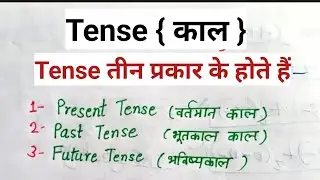 Tense { काल }
Tense तीन प्रकार के होते हैं
1- Present Tense (वर्तमान काल)
2- Past Tense (भूतकाल काल)
3- Future Tense (भविष्यकाल)